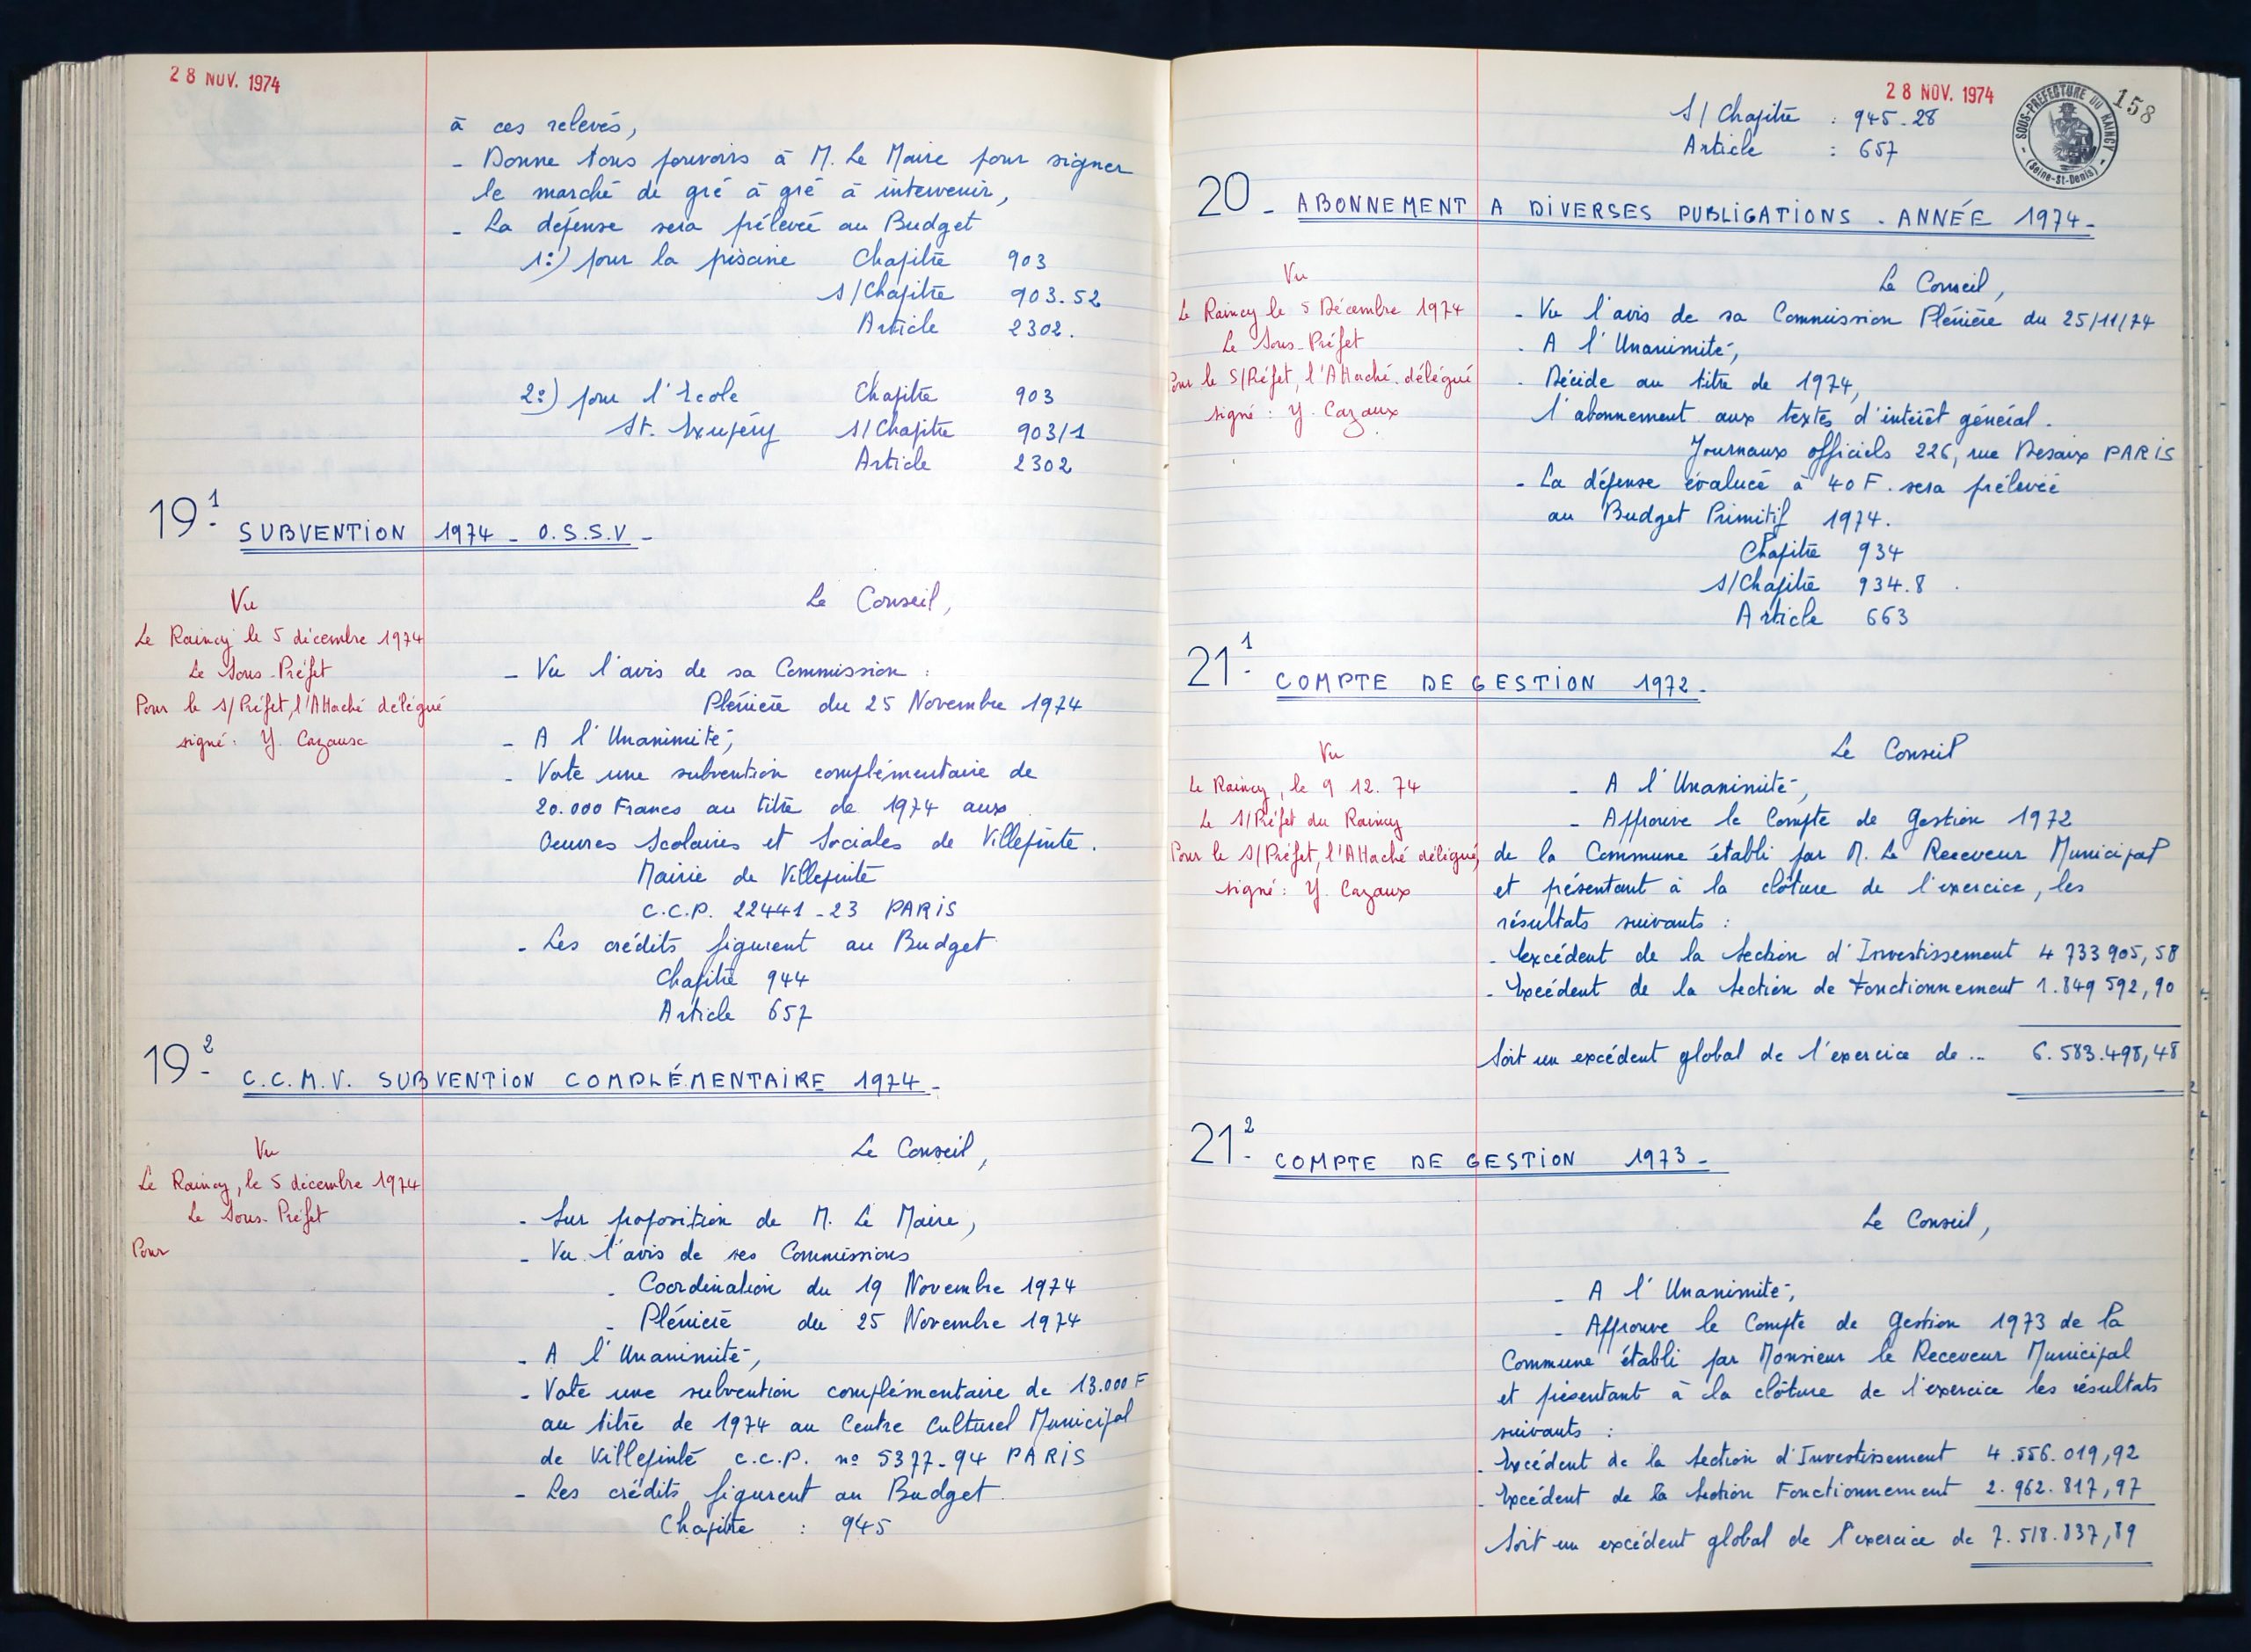 28 NOV. 1974
à ces relevés,
- Donne tous pouvoirs à M. Le Maire pour signer
le marché de gré à gré à intervenir,
- La dépense sera prélevée au Budget
1°) pour la piscine Chapitre 903
S/Chapitre 903.52
Article 2302.
2°) pour l'Ecole Chapitre 903
St. Exupéry S/Chapitre 903/1
Article 2302
19.1 SUBVENTION 1974 - O.S.S.V -
Le Conseil,
Vu
Le Raincy le 5 décembre 1974
Le Sous-Préfet
Pour le S/Préfet, l'Attaché délégué
signé : Y. Cazaux
- Vu l'avis de sa Commission :
Plénière du 25 Novembre 1974
- A l'Unanimité,
- Vote une subvention complémentaire de
20.000 Francs au titre de 1974 aux
Oeuvres Scolaires et Sociales de Villepinte.
Mairie de Villepinte
C.C.P. 22441-23 PARIS
- Les crédits figurent au Budget
Chapitre 944
Article 657
19.2 C.C.M.V. SUBVENTION COMPLÉMENTAIRE 1974 -
Le Conseil,
Vu
Le Raincy, le 5 décembre 1974
Le Sous-Préfet
Pour
- Sur proposition de M. Le Maire,
- Vu l'avis de ses Commissions
- Coordination du 19 Novembre 1974
- Plénière du 25 Novembre 1974
- A l'Unanimité,
- Vote une subvention complémentaire de 13.000 F
au titre de 1974 au Centre Culturel Municipal
de Villepinte C.C.P. n° 5377-94 PARIS
- Les crédits figurent au Budget
Chapitre : 945
28 NOV. 1974
158
SOUS-PREFECTURE DU RAINCY
(Seine-St-Denis)
S/Chapitre : 945-28
Article : 657
20 - ABONNEMENT A DIVERSES PUBLIGATIONS - ANNÉE 1974 -
Le Conseil,
Vu
Le Raincy le 5 Décembre 1974
Le Sous-Préfet
Pour le S/Préfet, l'Attaché délégué
signé : Y. Cazaux
- Vu l'avis de sa Commission Plénière du 25/11/74
- A l'Unanimité,
- Décide au titre de 1974,
l'abonnement aux textes d'intérêt général.
Journaux officiels 226, rue Desaix PARIS
- La dépense évaluée à 40 F. sera prélevée
au Budget Primitif 1974.
Chapitre 934
S/Chapitre 934.8
Article 663
21.1 COMPTE DE GESTION 1972 -
Le Conseil
Vu
Le Raincy, le 9 12. 74
Le S/Préfet du Raincy
Pour le S/Préfet, l'Attaché délégué,
signé : Y. Cazaux
- A l'Unanimité,
- Approuve le Compte de Gestion 1972
de la Commune établi par M. Le Receveur Municipal
et présentant à la clôture de l'exercice, les
résultats suivants :
- Excédent de la Section d'Investissement 4 733 905,58
- Excédent de la Section de Fonctionnement 1.849 592,90
Soit un excédent global de l'exercice de ... 6.583.498,48
21.2 COMPTE DE GESTION 1973 -
Le Conseil,
- A l'Unanimité,
- Approuve le Compte de Gestion 1973 de la
Commune établi par Monsieur le Receveur Municipal
et présentant à la clôture de l'exercice les résultats
suivants :
- Excédent de la Section d'Investissement 4.556.019,92
- Excédent de la Section Fonctionnement 2.962.817,97
Soit un excédent global de l'exercice de 7.518.837,89